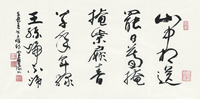 山中相送
罷日暮
掩柴扉春
草年年綠
王孫歸不歸